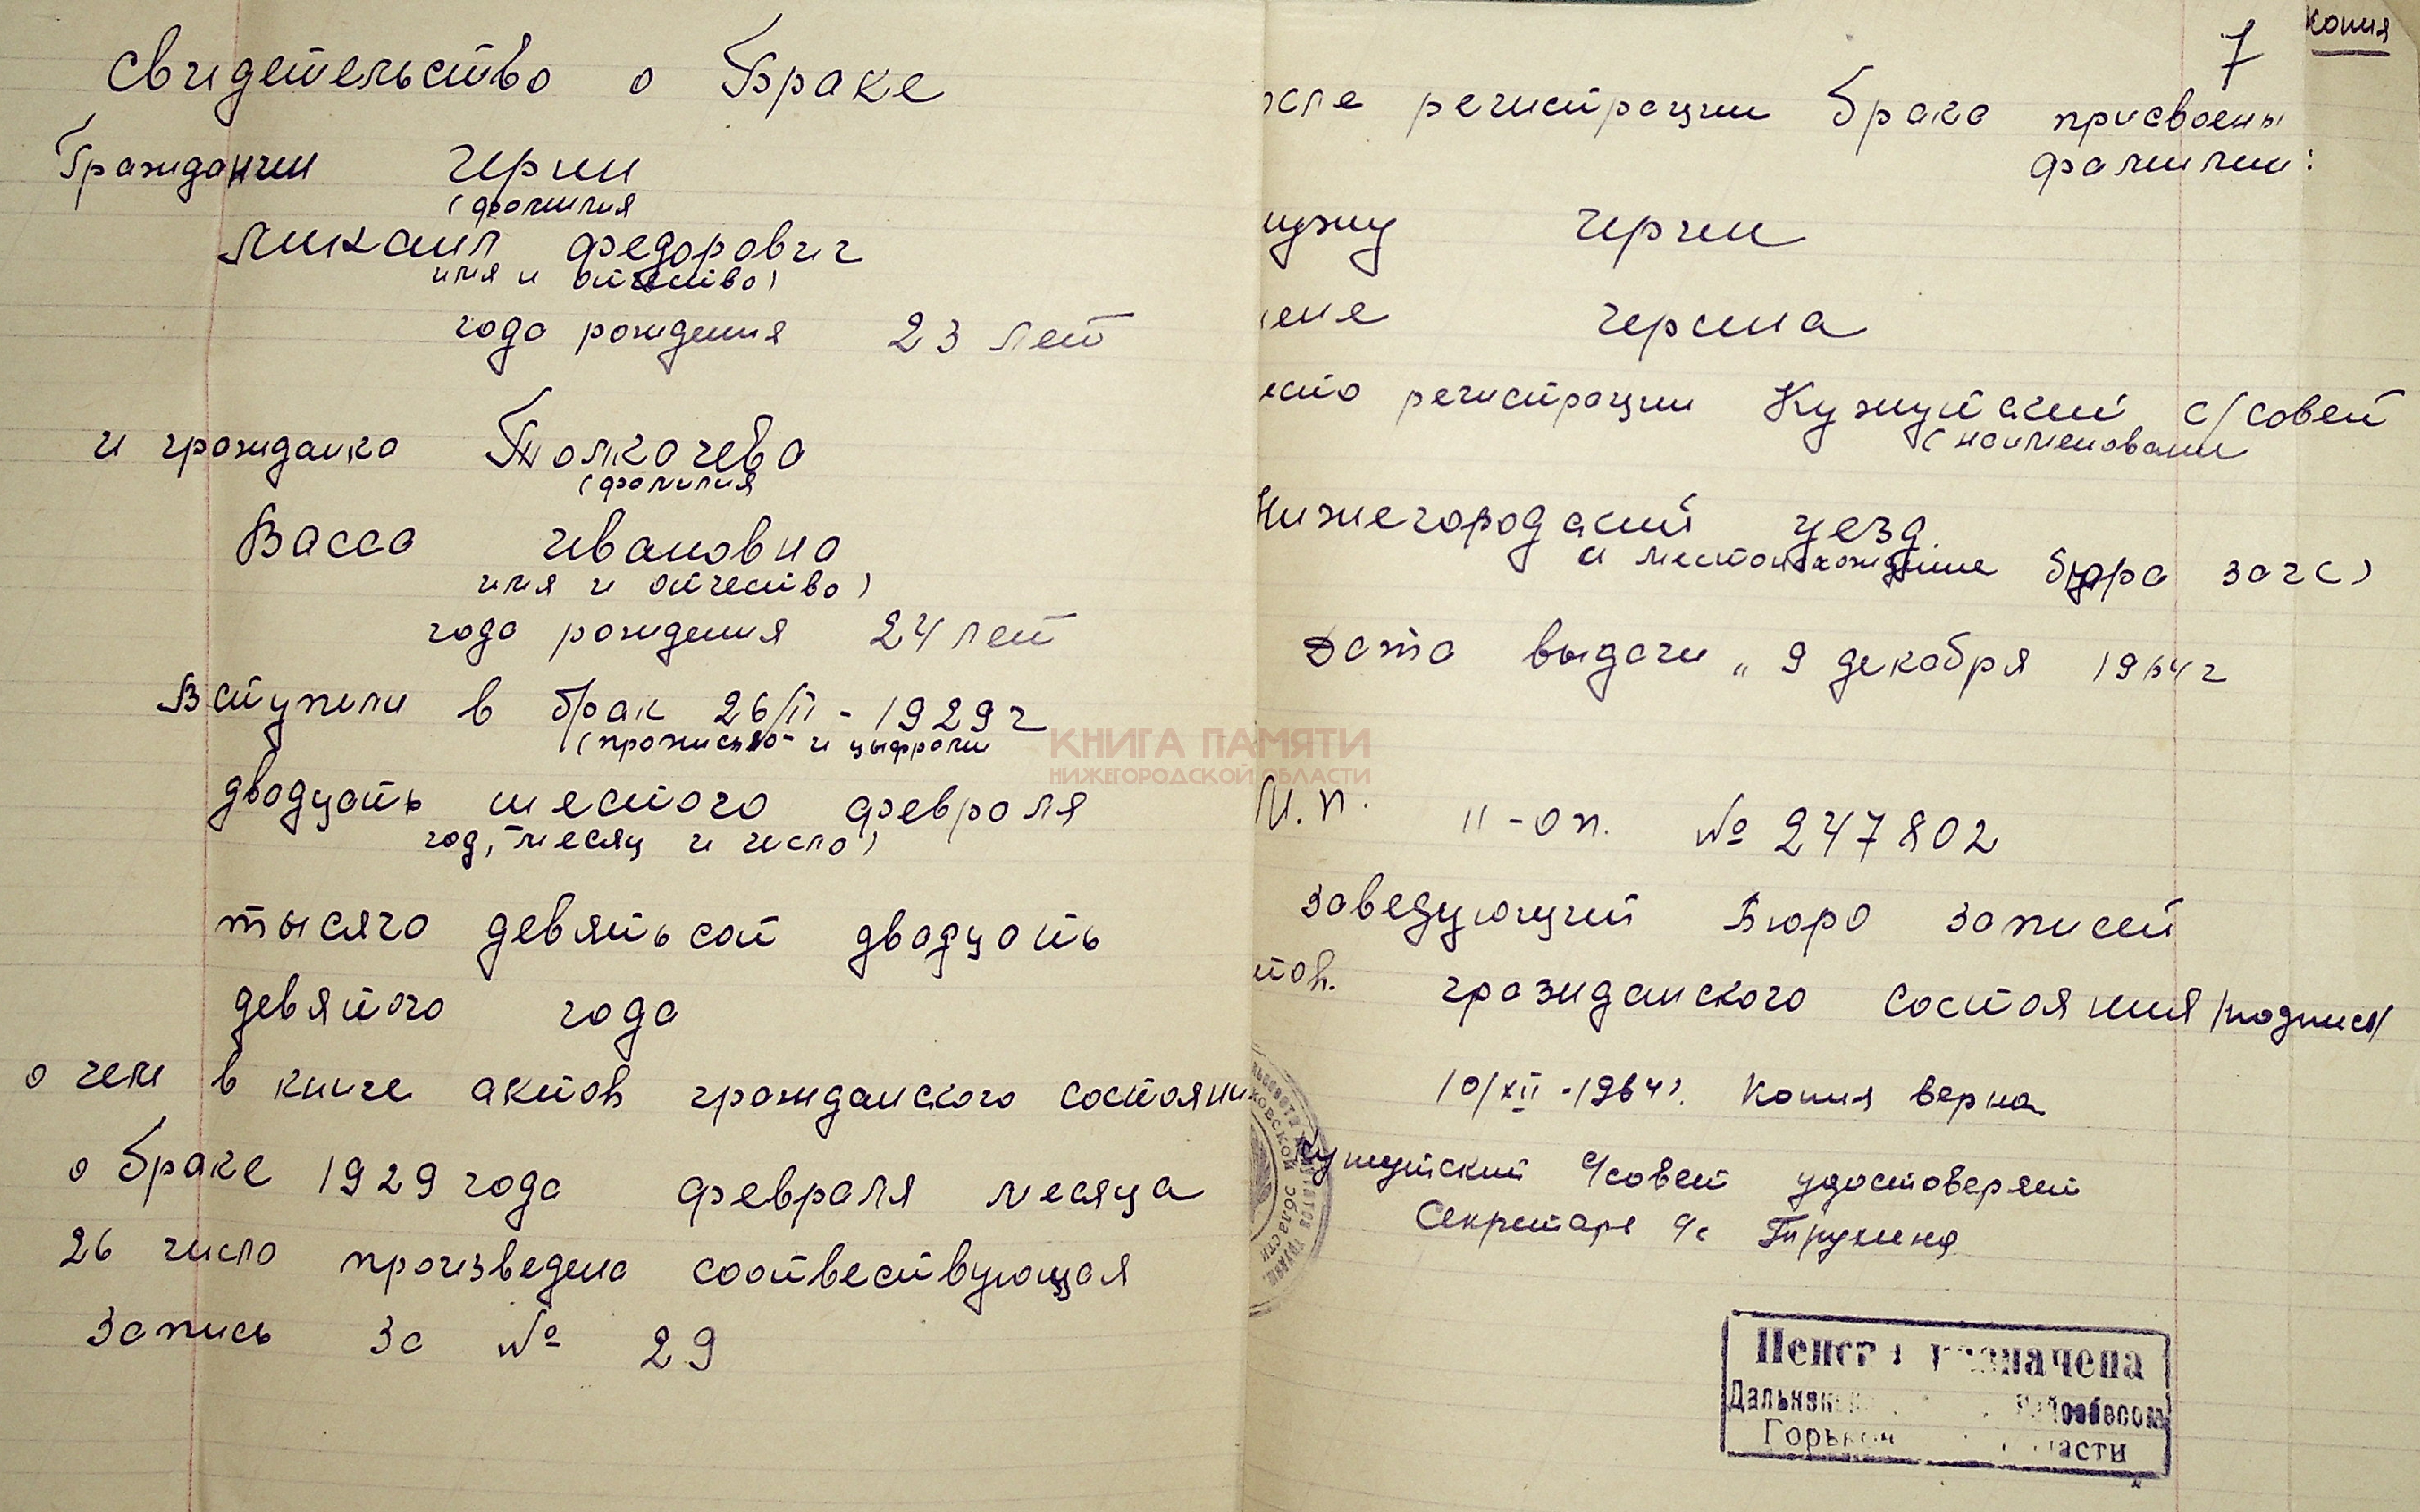 Свидетельство о Браке
Гражданин Герин
(фамилия
Михаил Федорович
имя и отчество)
года рождения 23 лет
и гражданка Толкачева
(фамилия
Васса Ивановна
имя и отчество)
года рождения 24 лет
Вступили в брак 26/II - 1929 г
(прописью и цыфрами
двадцать шестого февраля
год, месяц и число)
тысяча девятьсот двадцать
девятого года
о чем в книге актов гражданского состояни
о браке 1929 года февраля месяца
26 число произведена соотвествующая
запись за № 29
7 копия
осле регистрации брака присвоены
фамилии:
мужу Герин
жене Герина
место регистрации Кужутский с/совет
(наименовани
Нижегородский уезд
и местонахождение бюра загс)
Дата выдачи „ 9 декабря 1964 г
М.П. II-ол. № 247802
заведующий Бюро записей
тов. гражданского состояния /подпись/
10/XII - 1964 г. Копия верна
Кужутский с/совет удостоверяет
Секретарь с/с Трухина
Пенсия назначена
Дальне райсобесом
Горьк области
КНИГА ПАМЯТИ
НИЖЕГОРОДСКОЙ ОБЛАСТИ